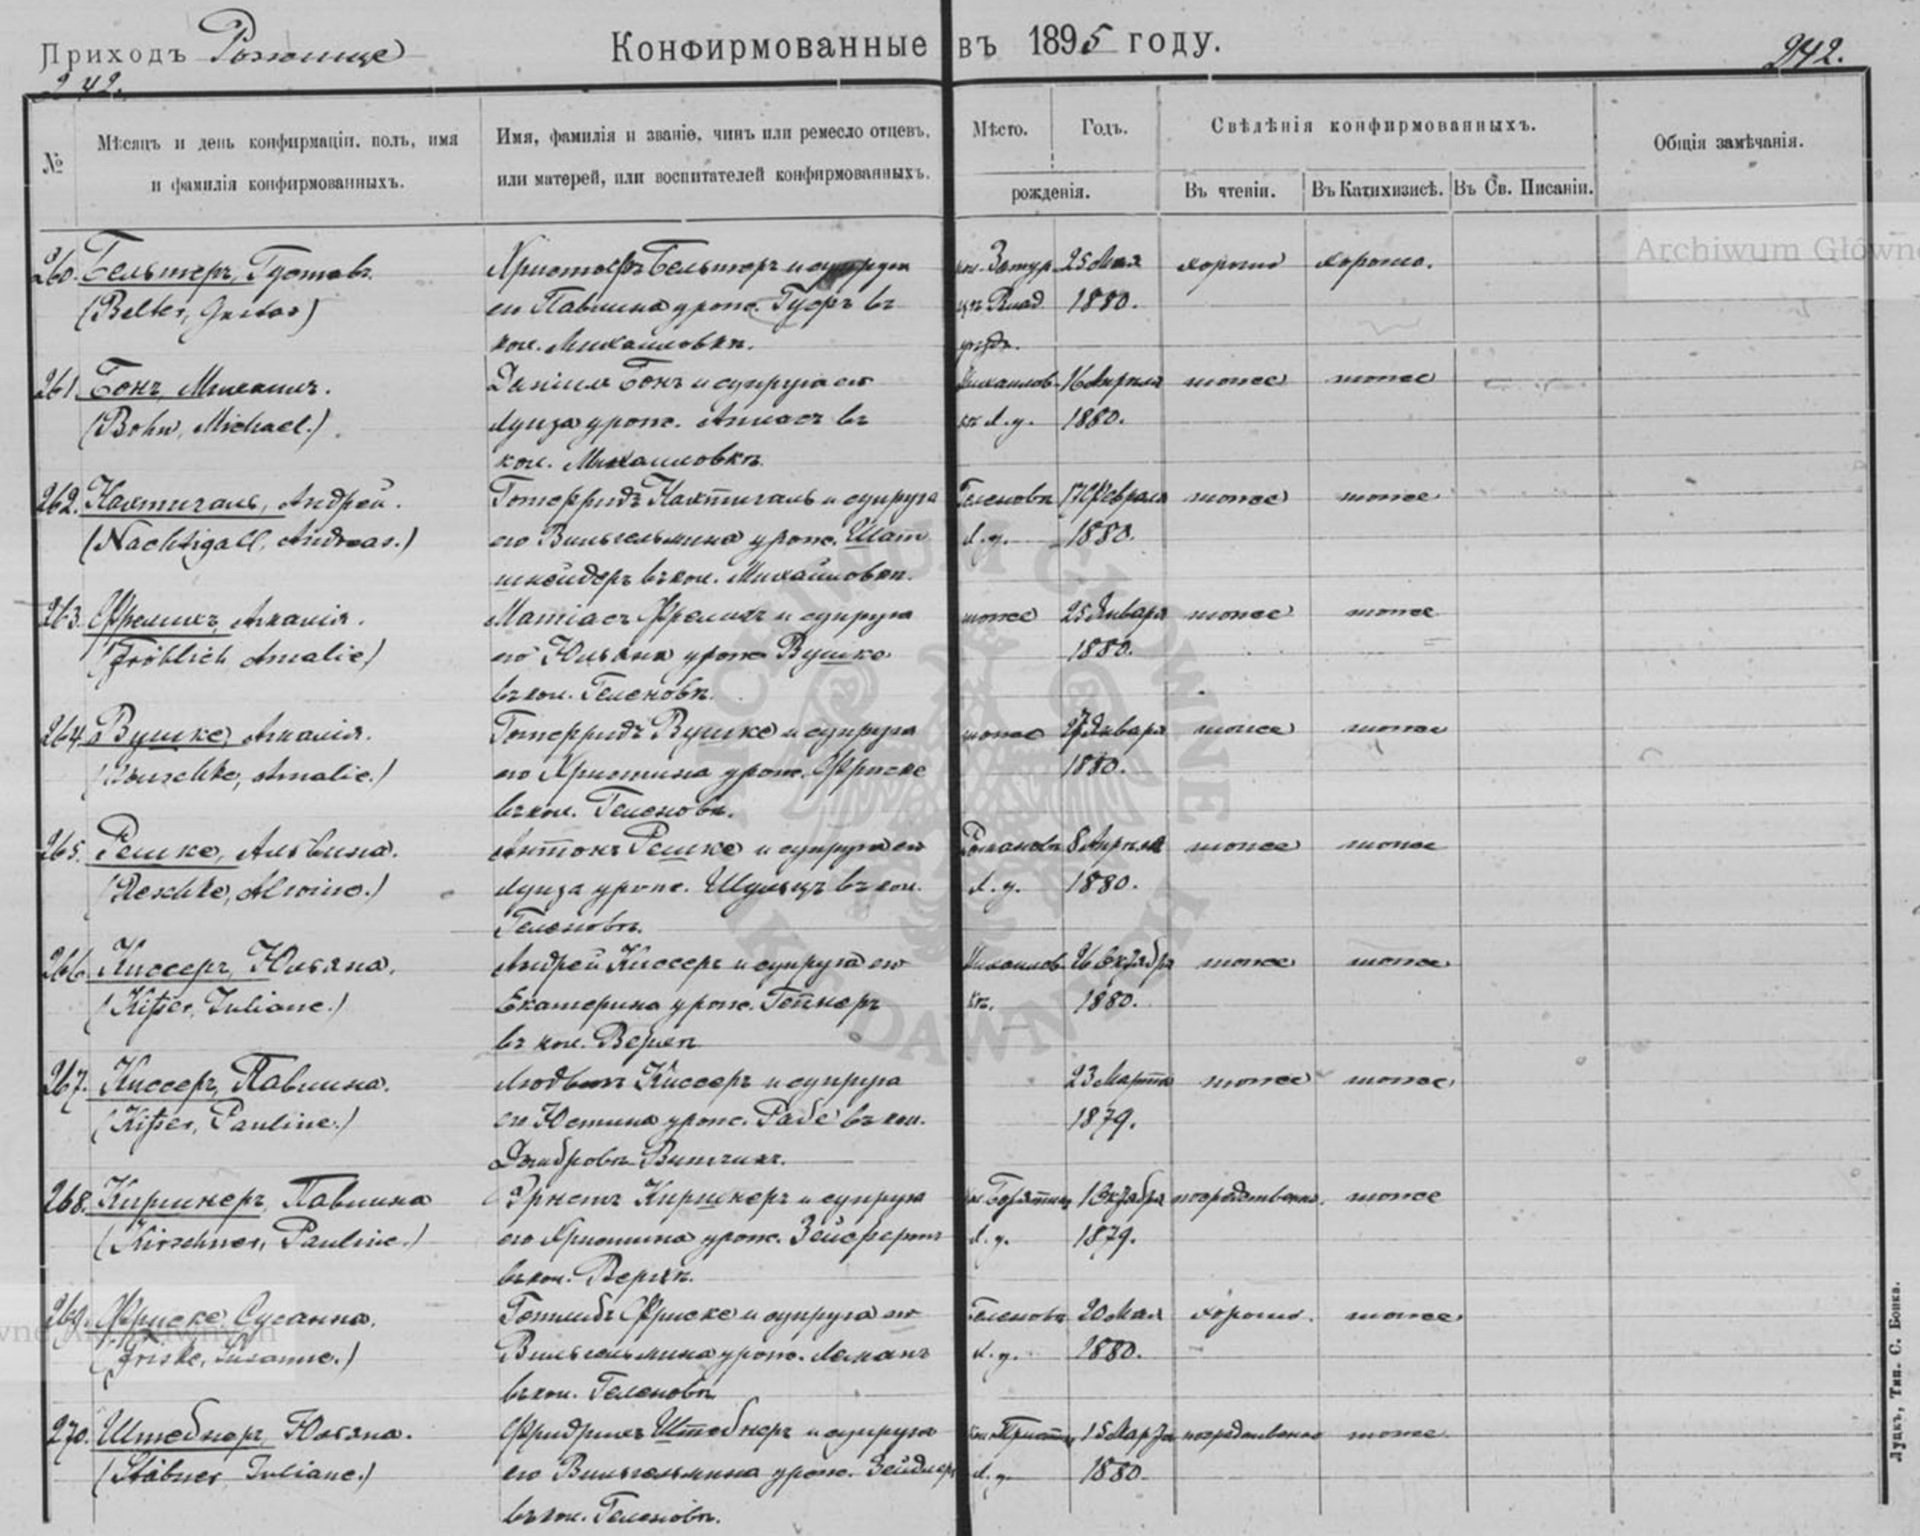 Приходъ Рожище
Конфирмованные въ 1895 году.
242.
242.
№
Мѣсяцъ и день конфирмаціи, полъ, имя
и фамилія конфирмованныхъ.
Имя, фамилія и званіе, чинъ или ремесло отцевъ,
или матерей, или воспитателей конфирмованныхъ.
Мѣсто.
Годъ.
рожденія.
Свѣдѣнія конфирмованныхъ.
Въ чтеніи.
Въ Катихизисѣ.
Въ Св. Писаніи.
Общія замѣчанія.
260. Бельтеръ, Густавъ. Христофъ Бельтеръ и супруга кол. Затур 25 Мая хорошо хорошо.
(Belter, Gustav) его Павлина урож. въ 1880.
кол. Михайловкѣ. уѣзд.
261. Бонъ, Михаилъ. Даніилъ Бонъ и супруга его Михайлов 16 Апрѣля тоже тоже
(Bohn, Michael.) Луиза урож. въ кѣ Л.у. 1880.
кол. Михайловкѣ.
262. Нахтигаль, Андрей. Готфридъ Нахтигаль и супруга Геленовъ 17 Февраля тоже тоже
(Nachtigall, Andreas.) его Вильгельмина урож. Шат Л.у. 1880.
шнейдеръ въ кол. Михайловкѣ.
263. Фрелихъ, Амалія. Матіасъ Фрелихъ и супруга тоже 25 Января тоже тоже
(Fröhlich Amalie) его Юльяна урож. Вушке 1880.
въ кол. Геленовъ.
264. Вушке, Амалія. Готфридъ Вушке и супруга тоже 27 Января тоже тоже
(Wuschke, Amalie.) его Христина урож. Фриске 1880.
въ кол. Геленовъ.
265. Решке, Альвина. Антонъ Решке и супруга его Романовъ 8 Апрѣля тоже тоже
(Reschke, Alwine.) Луиза урож. Шульцъ въ кол. Л.у. 1880.
Геленовъ.
266. Киссеръ, Юльяна. Андрей Киссеръ и супруга его Михайлов 26 Октября тоже тоже
(Kißer, Juliane.) Екатерина урож. Гепнеръ кѣ. 1880.
въ кол.
267. Киссеръ, Павлина. Людвигъ Киссеръ и супруга 23 Марта тоже тоже
(Kißer, Pauline.) его Юстина урож. Рабе въ кол. 1879.
268. Киршнеръ, Павлина Эрнстъ Киршнеръ и супруга кол. 1 Октября посредственно. тоже
(Kirschner, Pauline.) его Христина урож. Зейфертъ Л.у. 1879.
въ кол.
269. Фриске, Сусанна. Готлибъ Фриске и супруга его Геленовъ 20 Мая хорошо. тоже
(Friske, Susanne.) Вильгельмина урож. Леманъ Л.у. 1880.
въ кол. Геленовъ
270. Штебнеръ, Юльяна. Фридрихъ Штебнеръ и супруга кол. 15 Марта посредственно тоже
(Stäbner Juliane.) его Вильгельмина урож. Зейдлеръ Л.у. 1880
въ кол. Геленовъ.
Луцкъ, Тип. С. Бонка.
Archiwum Główne